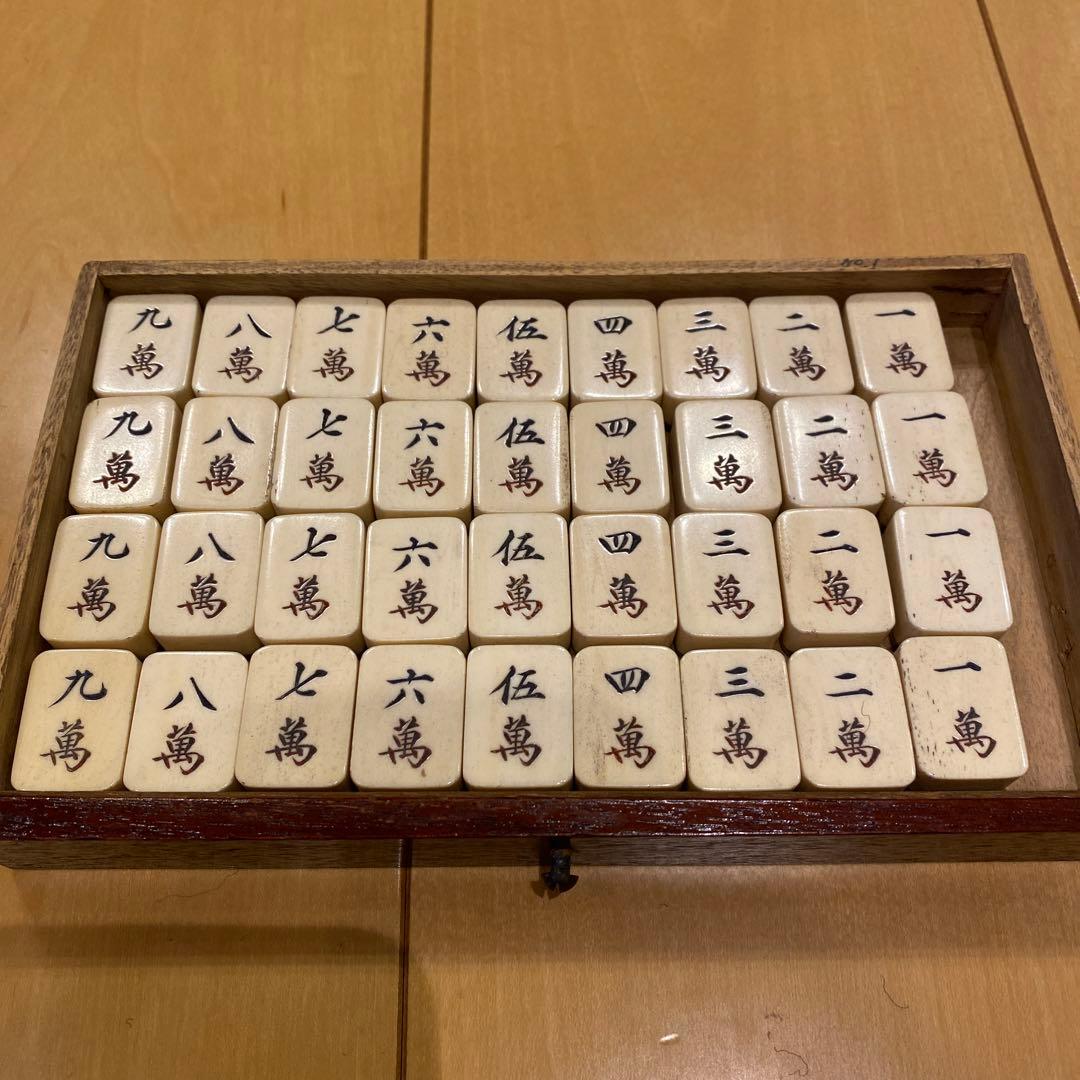 No.1
九 八 七 六 伍 四 三 二 一
萬 萬 萬 萬 萬 萬 萬 萬 萬
九 八 七 六 伍 四 三 二 一
萬 萬 萬 萬 萬 萬 萬 萬 萬
九 八 七 六 伍 四 三 二 一
萬 萬 萬 萬 萬 萬 萬 萬 萬
九 八 七 六 伍 四 三 二 一
萬 萬 萬 萬 萬 萬 萬 萬 萬